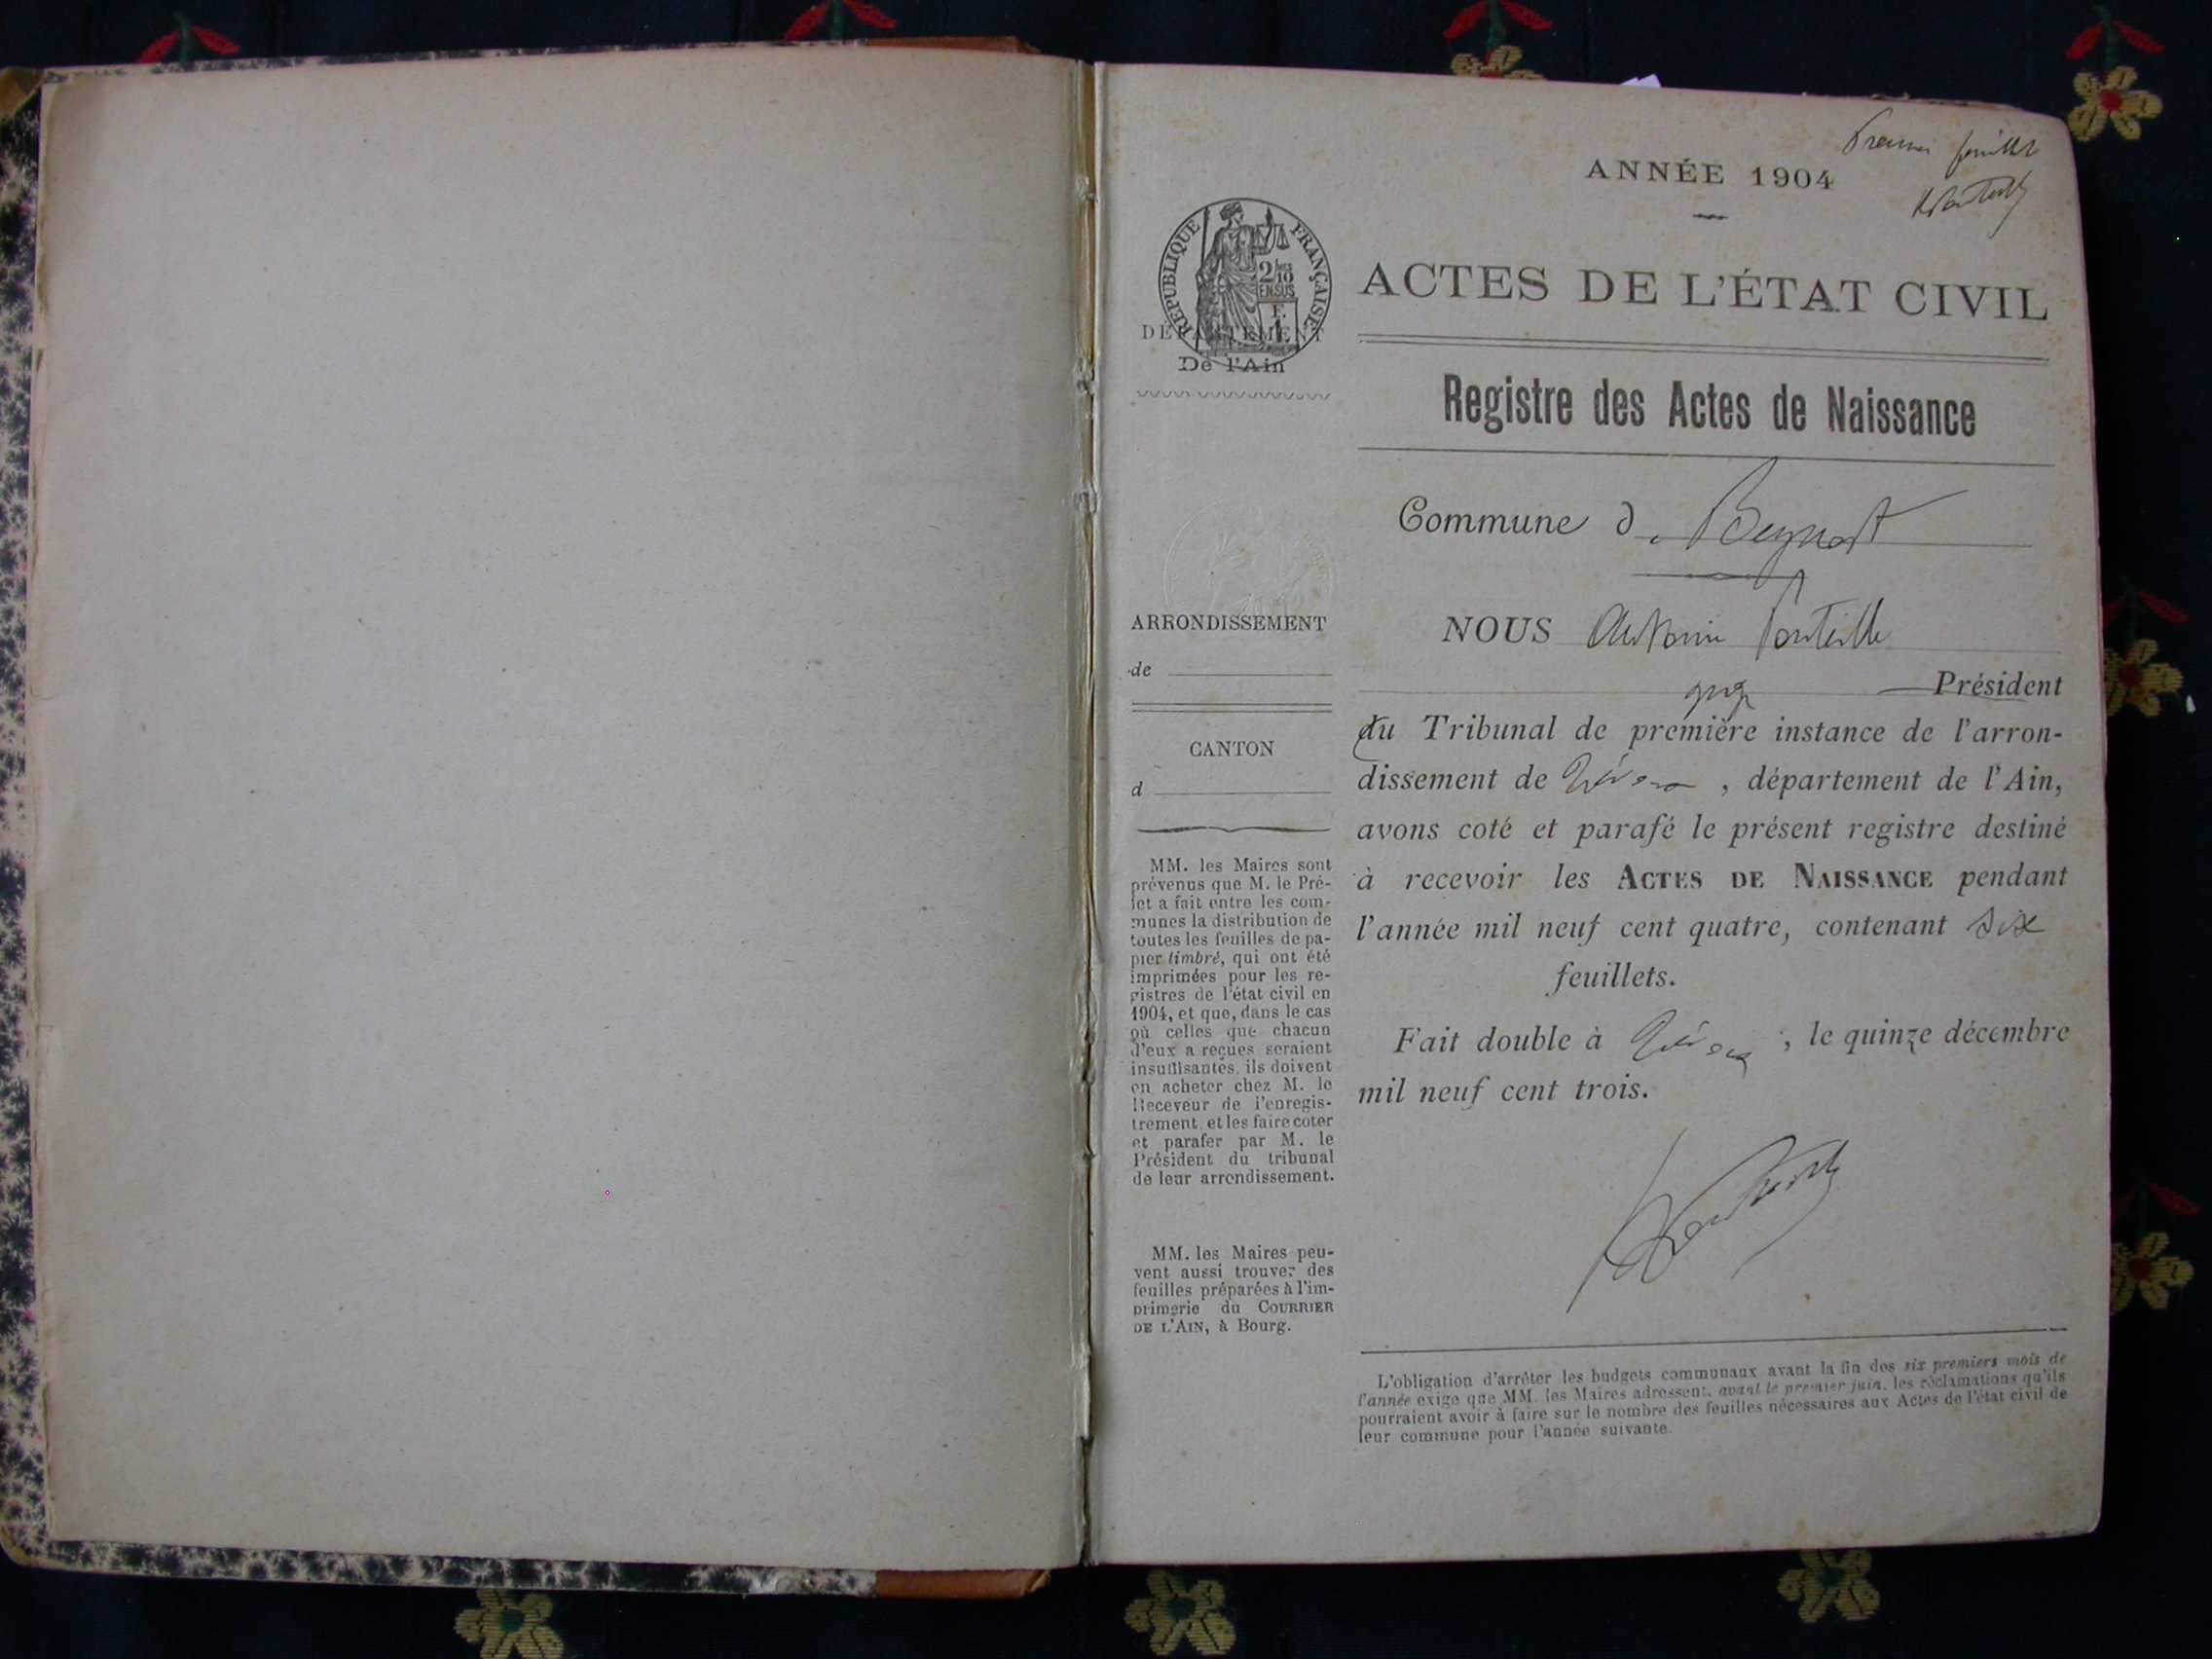 Premier feuillet
ANNÉE 1904
RÉPUBLIQUE FRANÇAISE
2/10 EN SUS
F. 1
DÉPARTEMENT
De l'Ain
ACTES DE L'ÉTAT CIVIL
Registre des Actes de Naissance
Commune de Beynost
NOUS Antoine Ponteille
juge Président
du Tribunal de première instance de l'arron-
dissement de Trévoux, département de l'Ain,
avons coté et parafé le présent registre destiné
à recevoir les ACTES DE NAISSANCE pendant
l'année mil neuf cent quatre, contenant six
feuillets.
Fait double à Trévoux, le quinze décembre
mil neuf cent trois.
ARRONDISSEMENT
de
CANTON
d
MM. les Maires sont
prévenus que M. le Pré-
fet a fait entre les com-
munes la distribution de
toutes les feuilles de pa-
pier timbré, qui ont été
imprimées pour les re-
gistres de l'état civil en
1904, et que, dans le cas
où celles que chacun
d'eux a reçues seraient
insuffisantes, ils doivent
en acheter chez M. le
Receveur de l'enregis-
trement, et les faire coter
et parafer par M. le
Président du tribunal
de leur arrondissement.
MM. les Maires peu-
vent aussi trouver des
feuilles préparées à l'im-
primerie du COURRIER
DE L'AIN, à Bourg.
L'obligation d'arrêter les budgets communaux avant la fin des six premiers mois de
l'année exige que MM. les Maires adressent, avant le premier juin, les réclamations qu'ils
pourraient avoir à faire sur le nombre des feuilles nécessaires aux Actes de l'état civil de
leur commune pour l'année suivante.